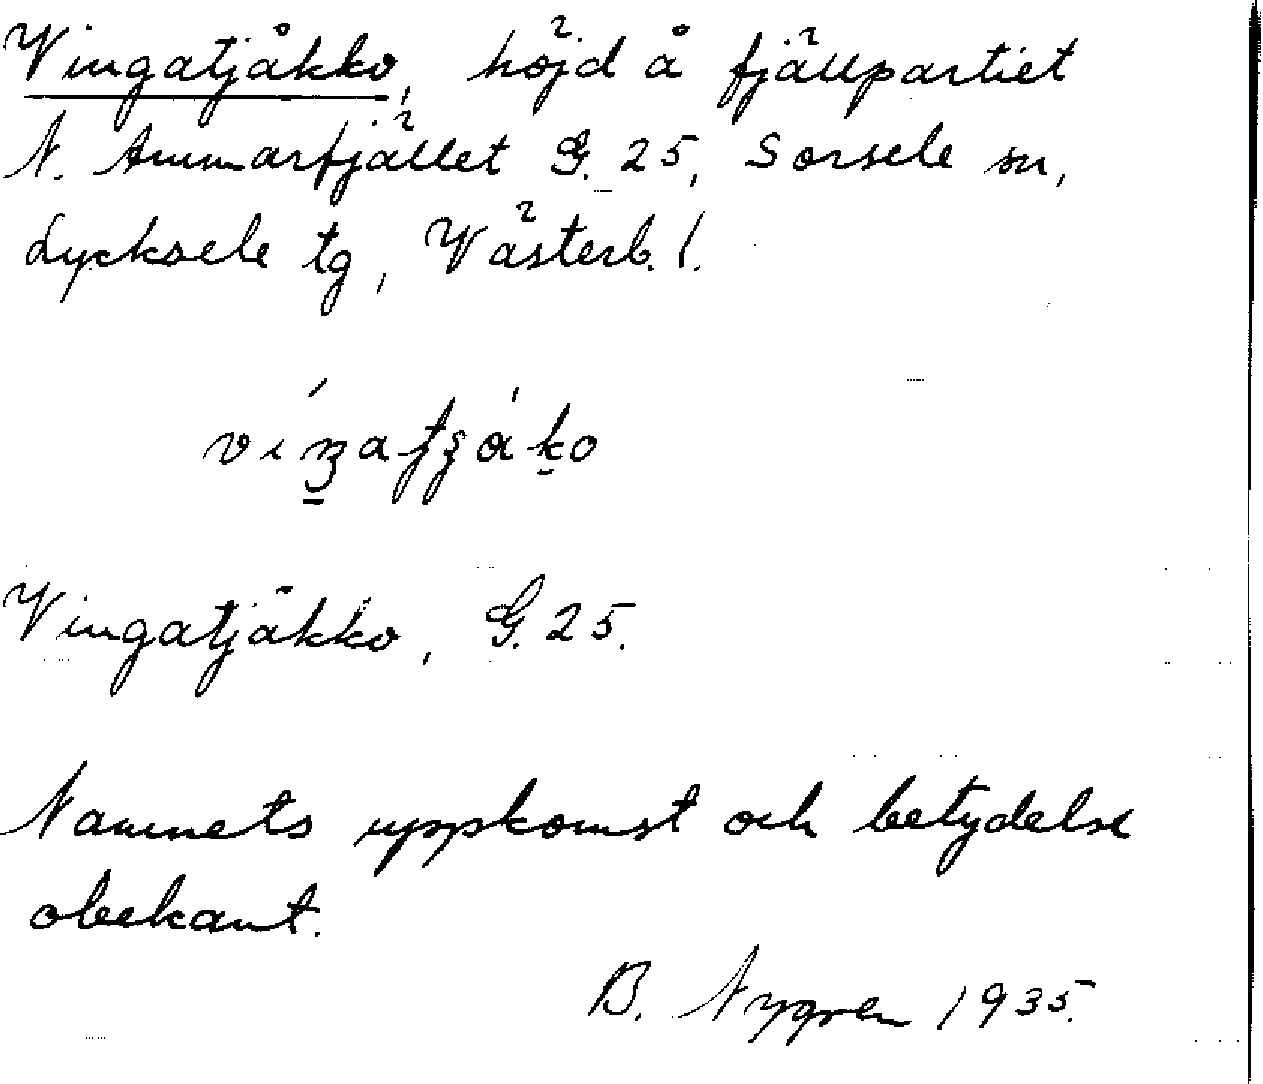 Vingatjåkko, höjd å fjällpartiet
N. Ammarfjället G. 25, Sorsele sn,
Lycksele tg, Västerb. l.
Vingatjåkko, G. 25.
Namnets uppkomst och betydelse
obekant.
B. Nygren 1935.